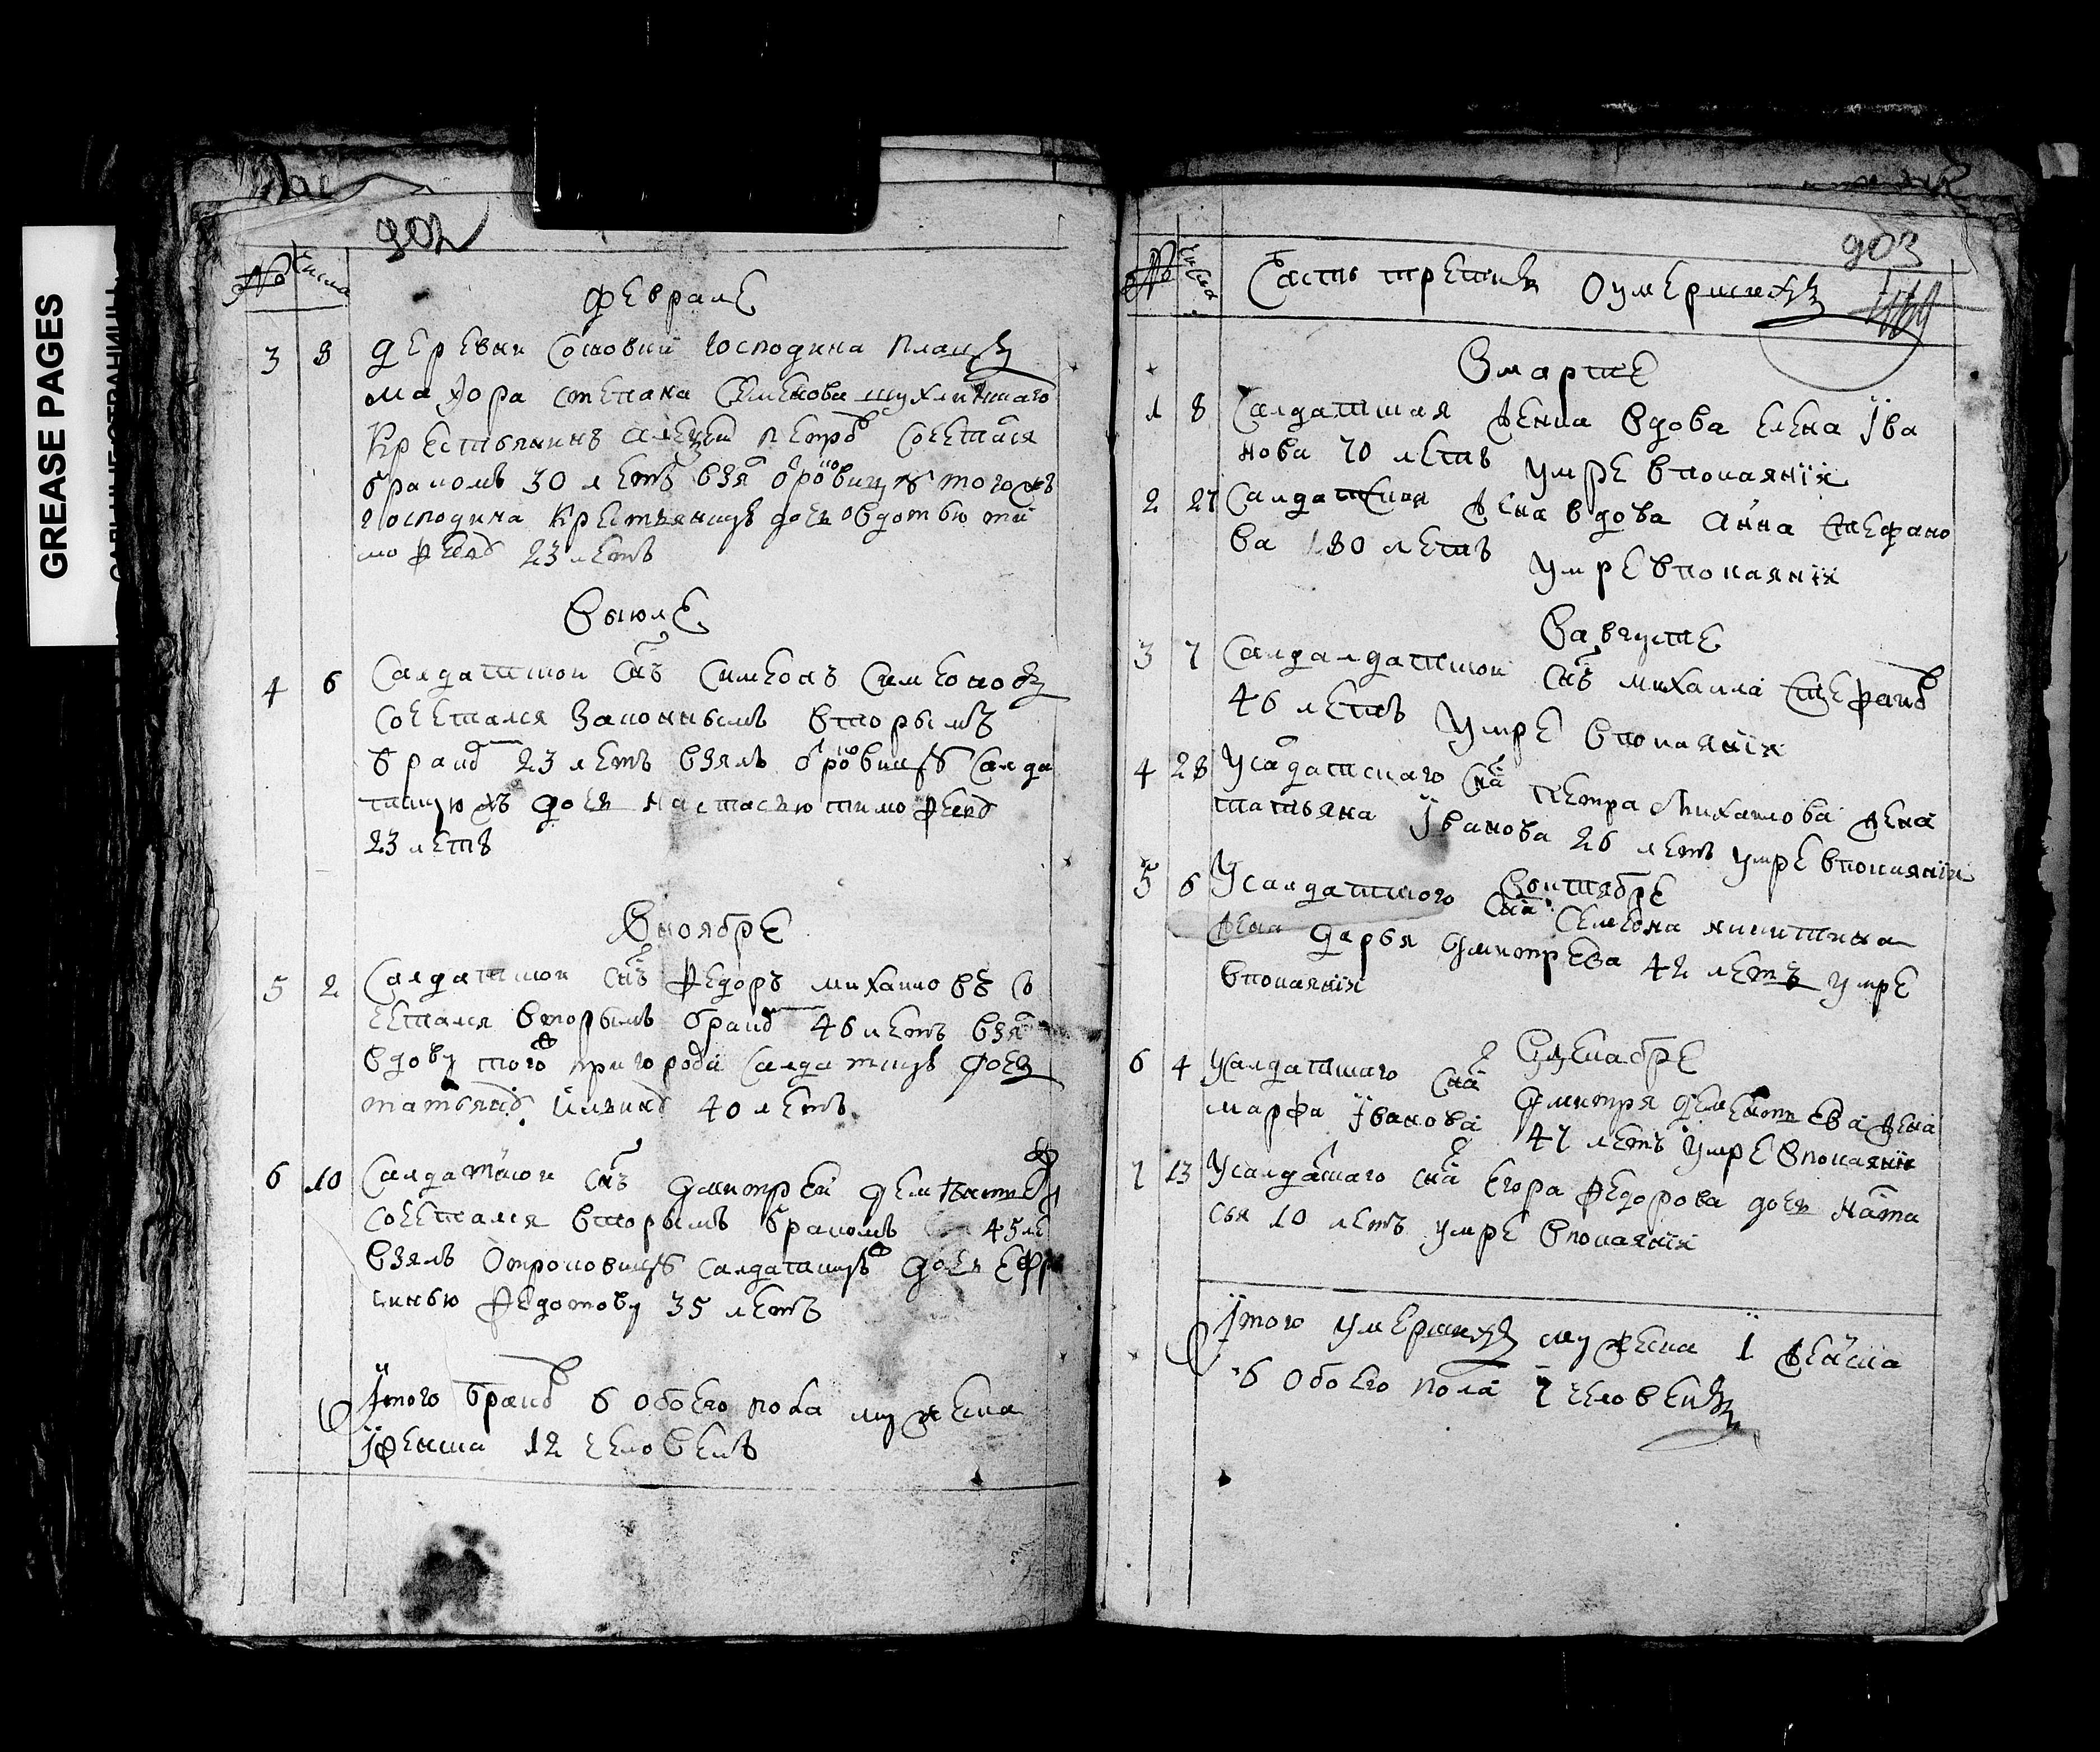 GREASE PAGES
902
№ числа
феврале
3 8 деревни Сосновки господина плацъ
маиора степана Семенова
крестьянинъ алеѯеи петровъ сочетался
бракомъ 30 летъ взя отроковицу того жъ
господина крестьянина дочь овдотью ти
мофееву 23 летъ
В ыюле
4 6 Салдатцкои снъ Симеонъ Симеоновъ
сочетался законнымъ вторымъ
бракомъ 23 летъ взялъ отроковицу салда
тцкую жъ дочь настасью тимофееву
23 летъ
В ноябре
5 2 Салдатцкои снъ Федоръ михаиловъ со
четался вторымъ бракомъ 46 летъ взя
вдову того пригорода салдатцку дочь
татьяну 40 летъ
6 10 Салдатцкои снъ Дмитреи Дементьевъ
сочетался вторымъ бракомъ 45 ле
взялъ отроковицу салдатцку дочь ефро
синью Федотову 35 летъ
Їтого браковъ 6 обоего пола мужеска
и женска 12 человекъ
903
№ числа
Часть третия О умершихъ
В марте
1 8 Салдатцкая жена вдова елена Їва
нова 70 летъ умре в покаянїи
2 27 Салдатцкая жена вдова анна Стефано
ва 80 летъ
умре в покаянїи
В августе
3 7 Салдалдатцкои снъ михаила Стефановъ
46 летъ умре в покаянїи
4 28 У салдатцкаго сна петра Михаилова жена
татьяна Їванова 26 летъ умре в покаянїи
В октябре
5 6 У салдатцкого сна Семиона никитина
жена дарья Дмитрева 42 летъ умре
в покаянїи
В декабре
6 4 У салдатцкаго сна Дмитря дементева жена
марфа Їванова 47 летъ умре в покаянїи
7 13 У салдатцкаго сна егора Федорова дочь ната
сья 10 летъ умре в покаянїи
Їтого умершихъ мужеска 1 женска
6 обоего пола 7 человекъ